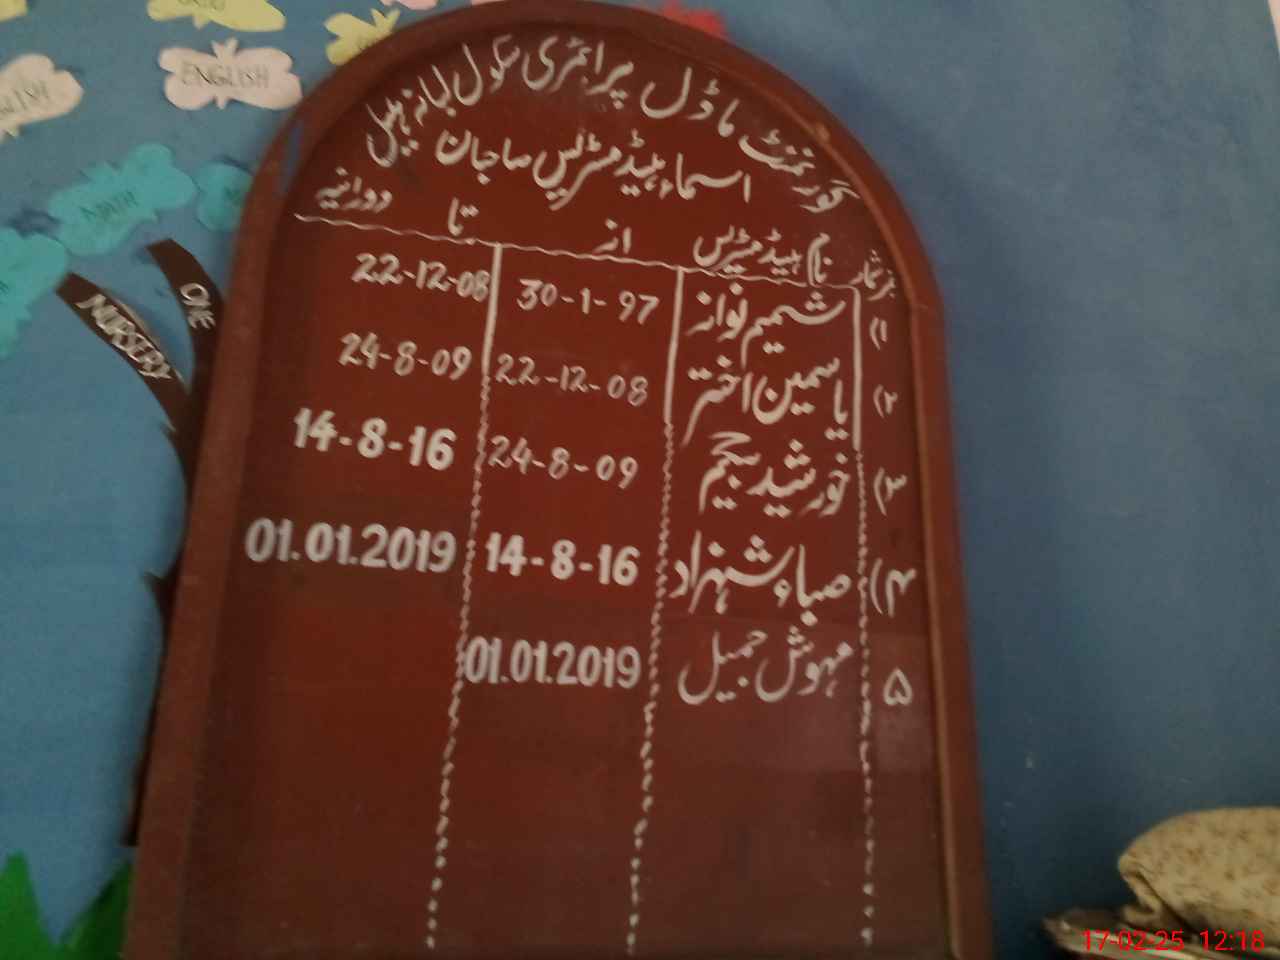 گورنمنٹ ماڈل پرائمری سکول لبانہ پہیل
اسماء ہیڈمسٹریس صاحبان
نمبرشمار نام ہیڈمسٹریس از تا دورانیہ
(۱ شمیم نواز 30-1-97 22-12-08
(۲ یاسمین اختر 22-12-08 24-8-09
(۳ خورشید بیگم 24-8-09 14-8-16
(۴ صباء شہزاد 14-8-16 01.01.2019
۵ مہوش جمیل 01.01.2019
ENGLISH
GLISH
MATH
NURSERY
ONE
17-02-25 12:18